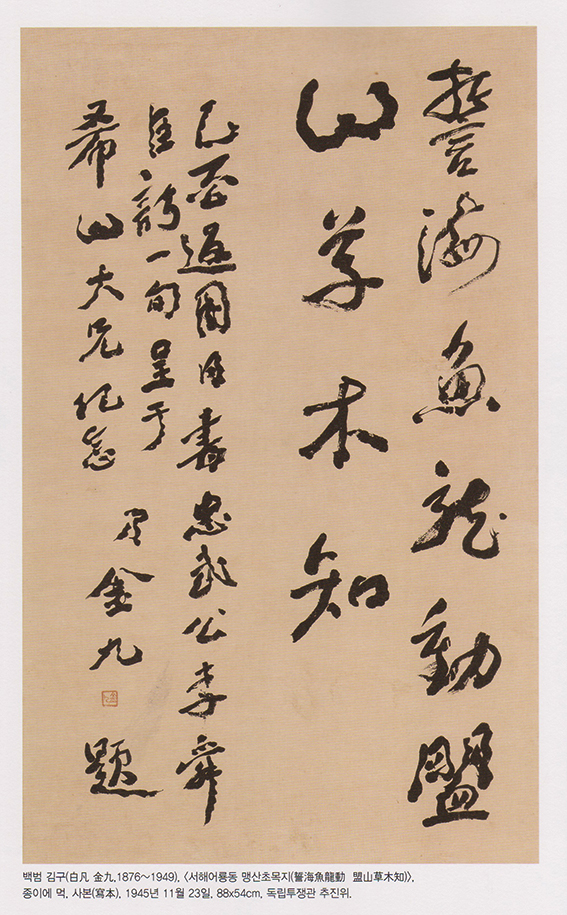 誓海魚龍動盟
山草木知
乙酉返國日書忠武公李舜
臣詩一句呈于
希山大兄紀念 弟 金九 題
백범 김구(白凡 金九,1876~1949), 〈서해어룡동 맹산초목지(誓海魚龍動 盟山草木知)〉,
종이에 먹, 사본(寫本), 1945년 11월 23일, 88x54cm, 독립투쟁관 추진위.